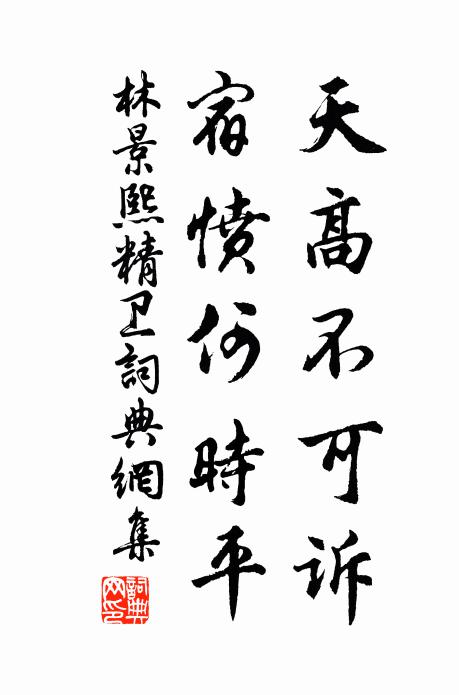 天高不可訴
宿憤何時平
林景熙精卫詞典網集
詞典網印